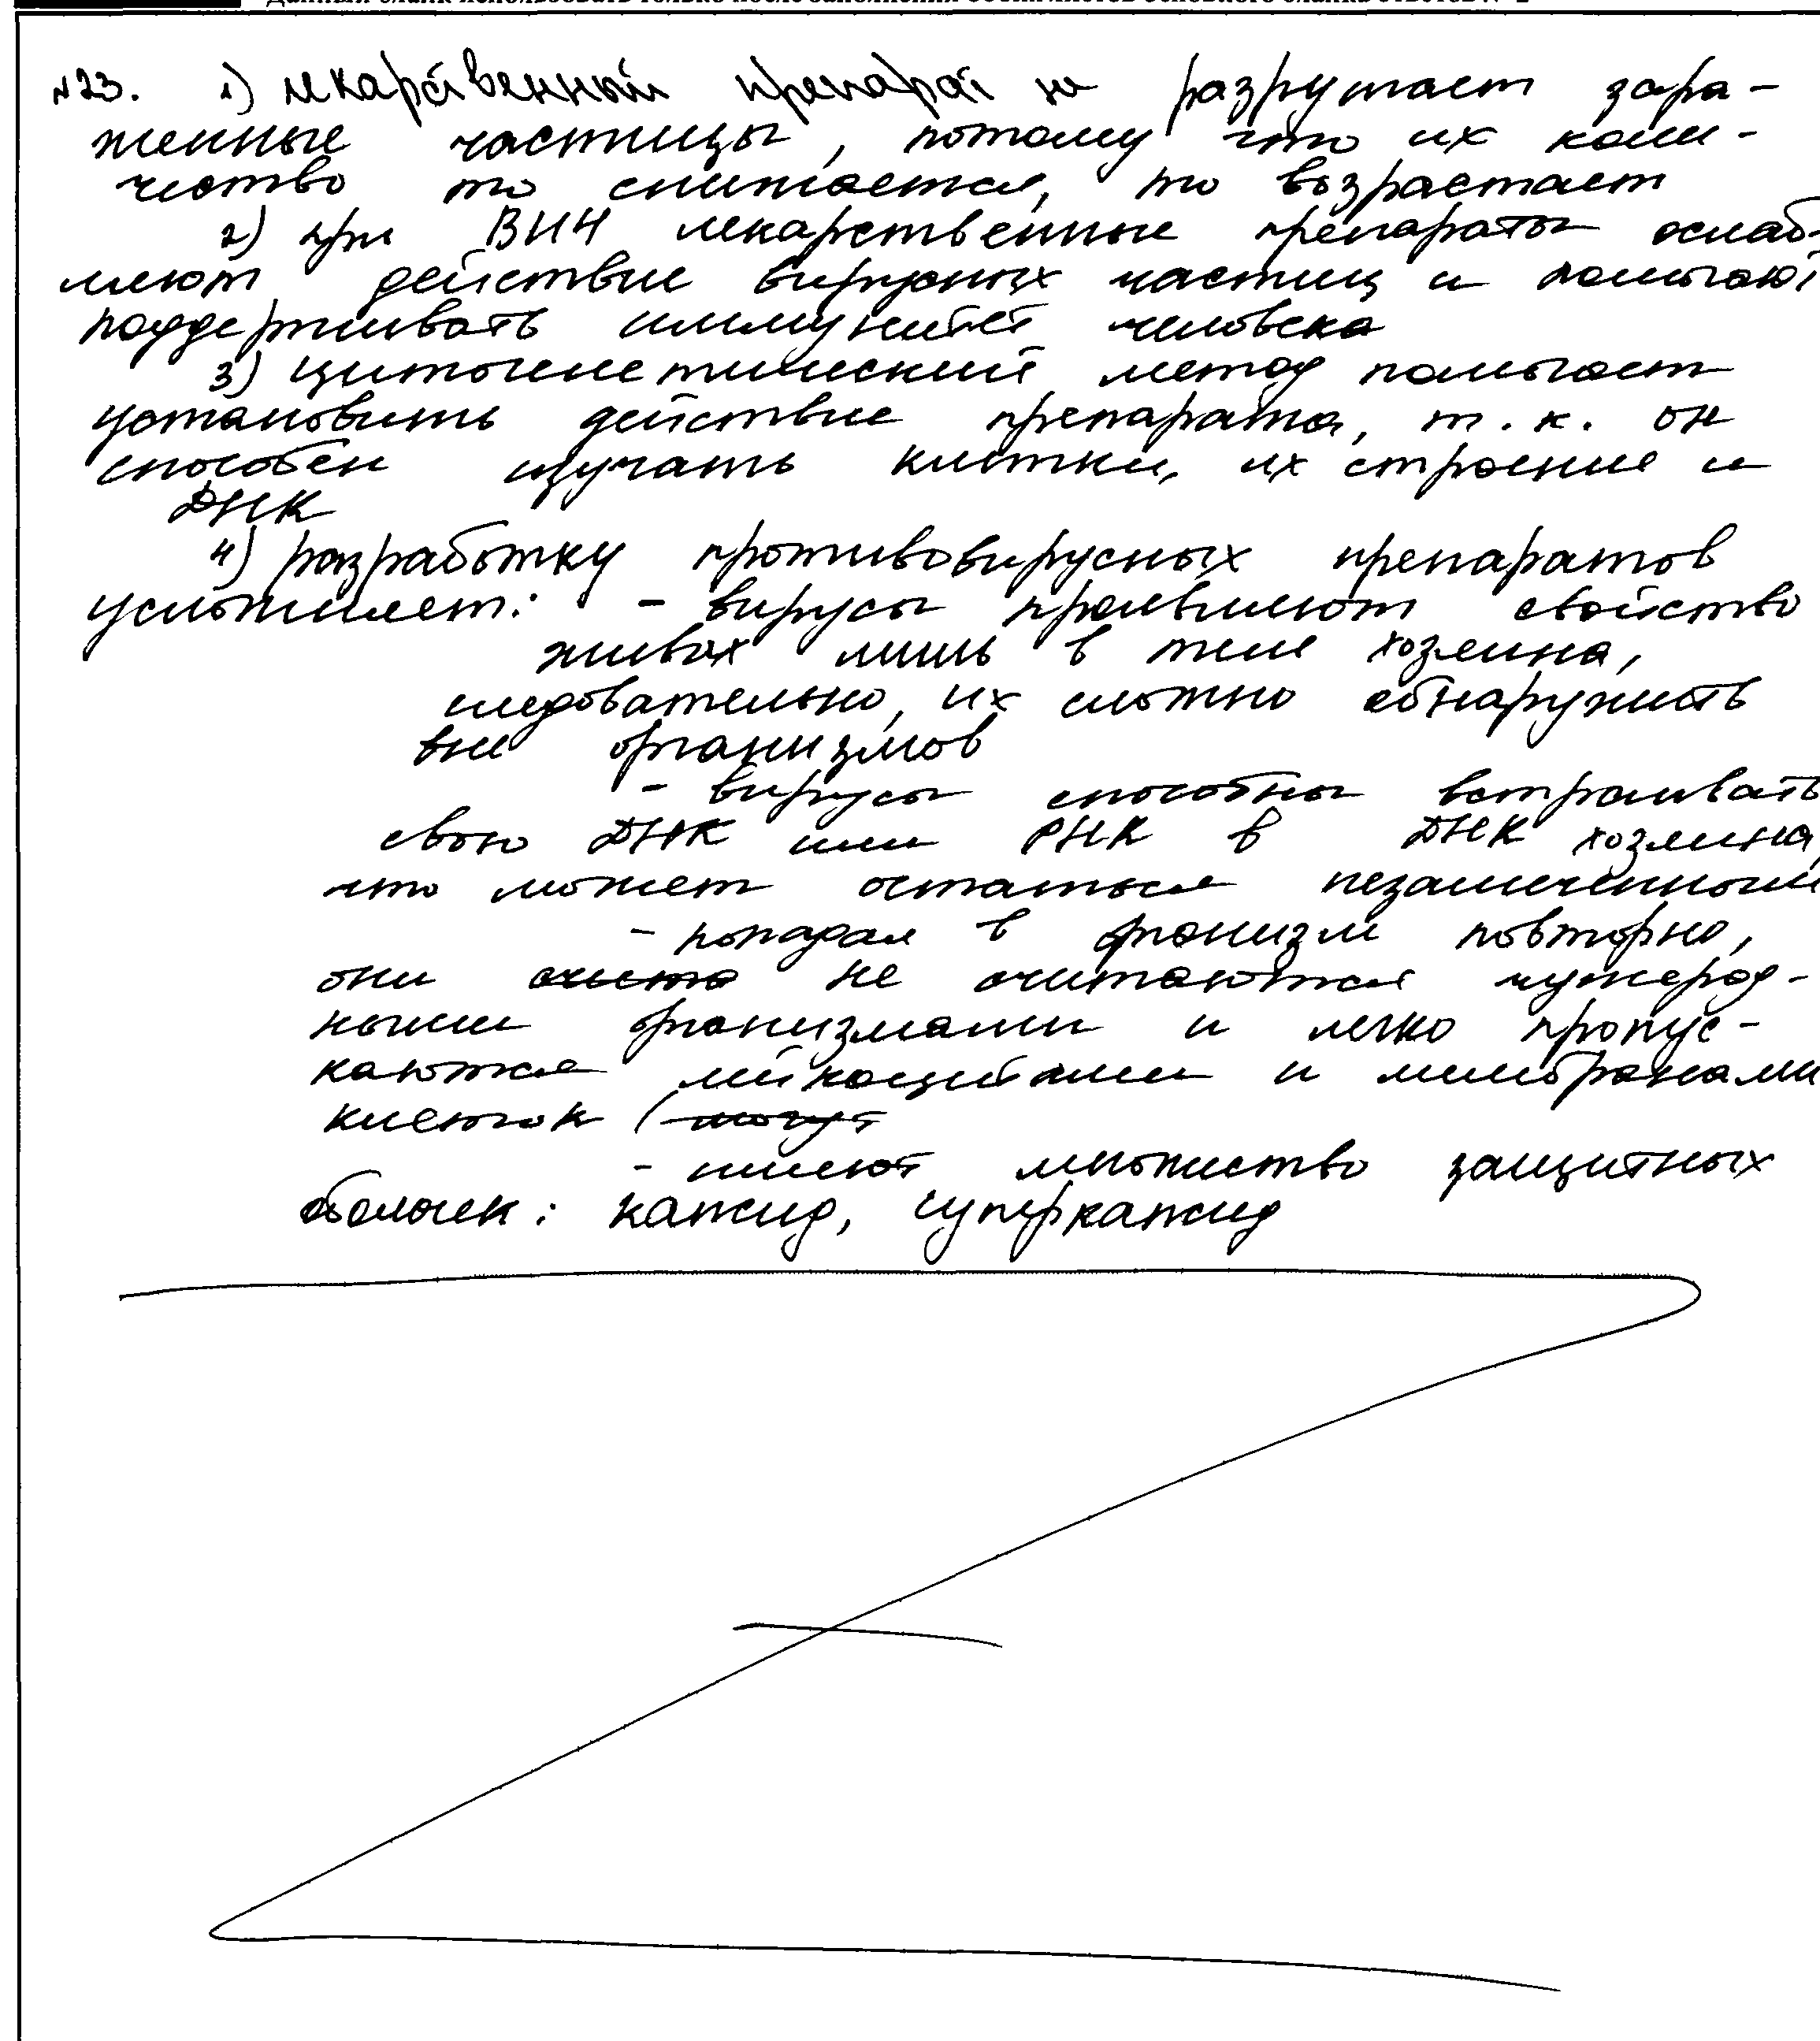 №23. 1) лекарственный препарат не разрушает зара-
женные частицы, потому что их коли-
чество то снижается, то возрастает
2) при ВИЧ лекарственные препараты ослаб-
ляют действие вирусных частиц и помогают
поддерживать иммунитет человека
3) цитогенетический метод помогает
установить действие препарата, т.к. он
способен изучать клетки, их строение и
ДНК
4) разработку противовирусных препаратов
усложняет: - вирусы проявляют свойство
живых лишь в теле хозяина,
следовательно, их сложно обнаружить
вне организмов
- вирусы способны встраивать
свою ДНК или РНК в ДНК хозяина,
что может остаться незамеченным
- попадая в организм повторно,
они не считаются чужерод-
ными организмами и легко пропус-
каются лейкоцитами и мембранами
клеток (
- имеют множество защитных
оболочек: капсид, суперкапсид